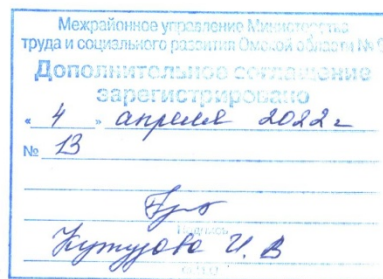 Межрайонное управление Министерства
труда и социального развития Омской области №
Дополнительное соглашение
зарегистрировано
« 4 » апреля 2022 г
№ 13
Подпись
И. В